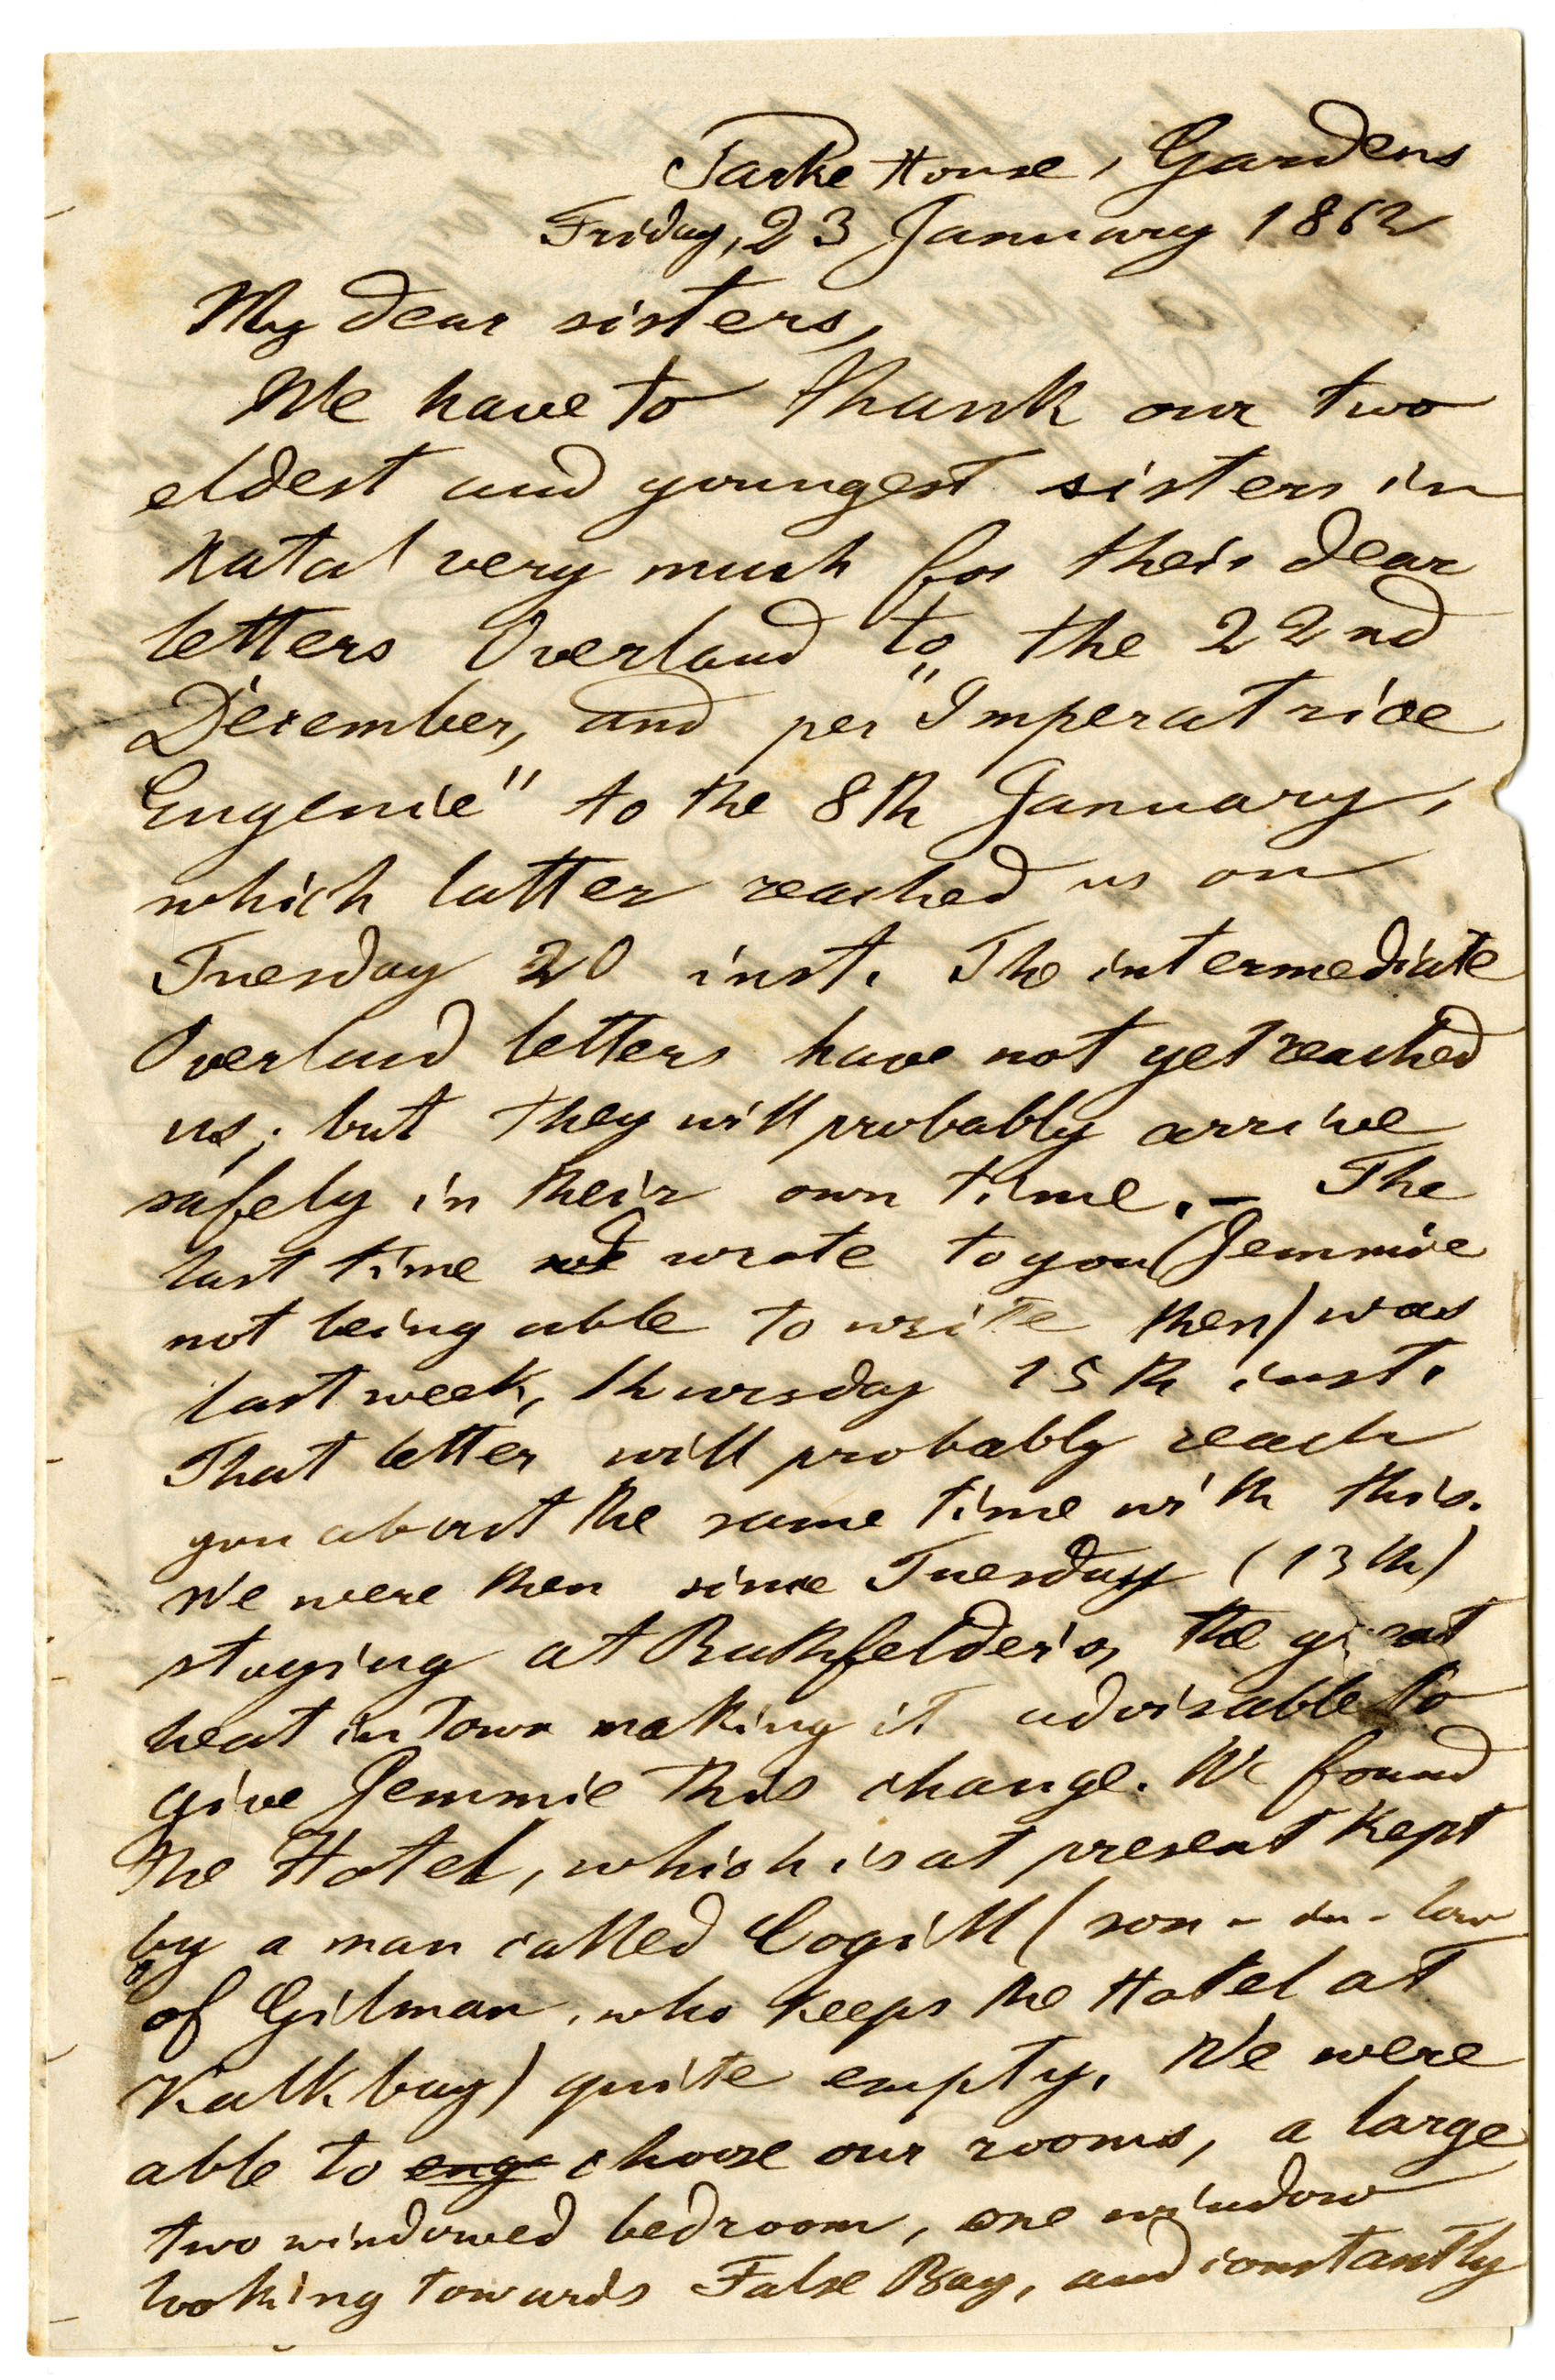 Parke House, Gardens
Friday, 23 January 1862
My dear sisters,
We have to thank our two
eldest and youngest sisters in
Natal very much for their dear
letters Overland to the 22nd
December, and per "Imperatrice
Eugenie" to the 8th January,
which latter reached us on
Tuesday 20 inst. The intermediate
Overland letters have not yet reached
us; but they will probably arrive
safely in their own time. – The
last time wrote to you (Jemmie
not being able to write then) was
last week, Thursday 15th inst.
That letter will probably reach
you about the same time with this.
We were then since Tuesday (13th)
staying at Rathfelder's, the great
heat in Town making it advisable to
give Jemmie this change. We found
the Hotel, which is at present kept
by a man called Cogill (son-in-law
of Gilman, who keeps the Hotel at
Kalkbay) quite empty. We were
able to enge choose our rooms, a large
two windowed bedroom, one window
looking towards False Bay, and constantly